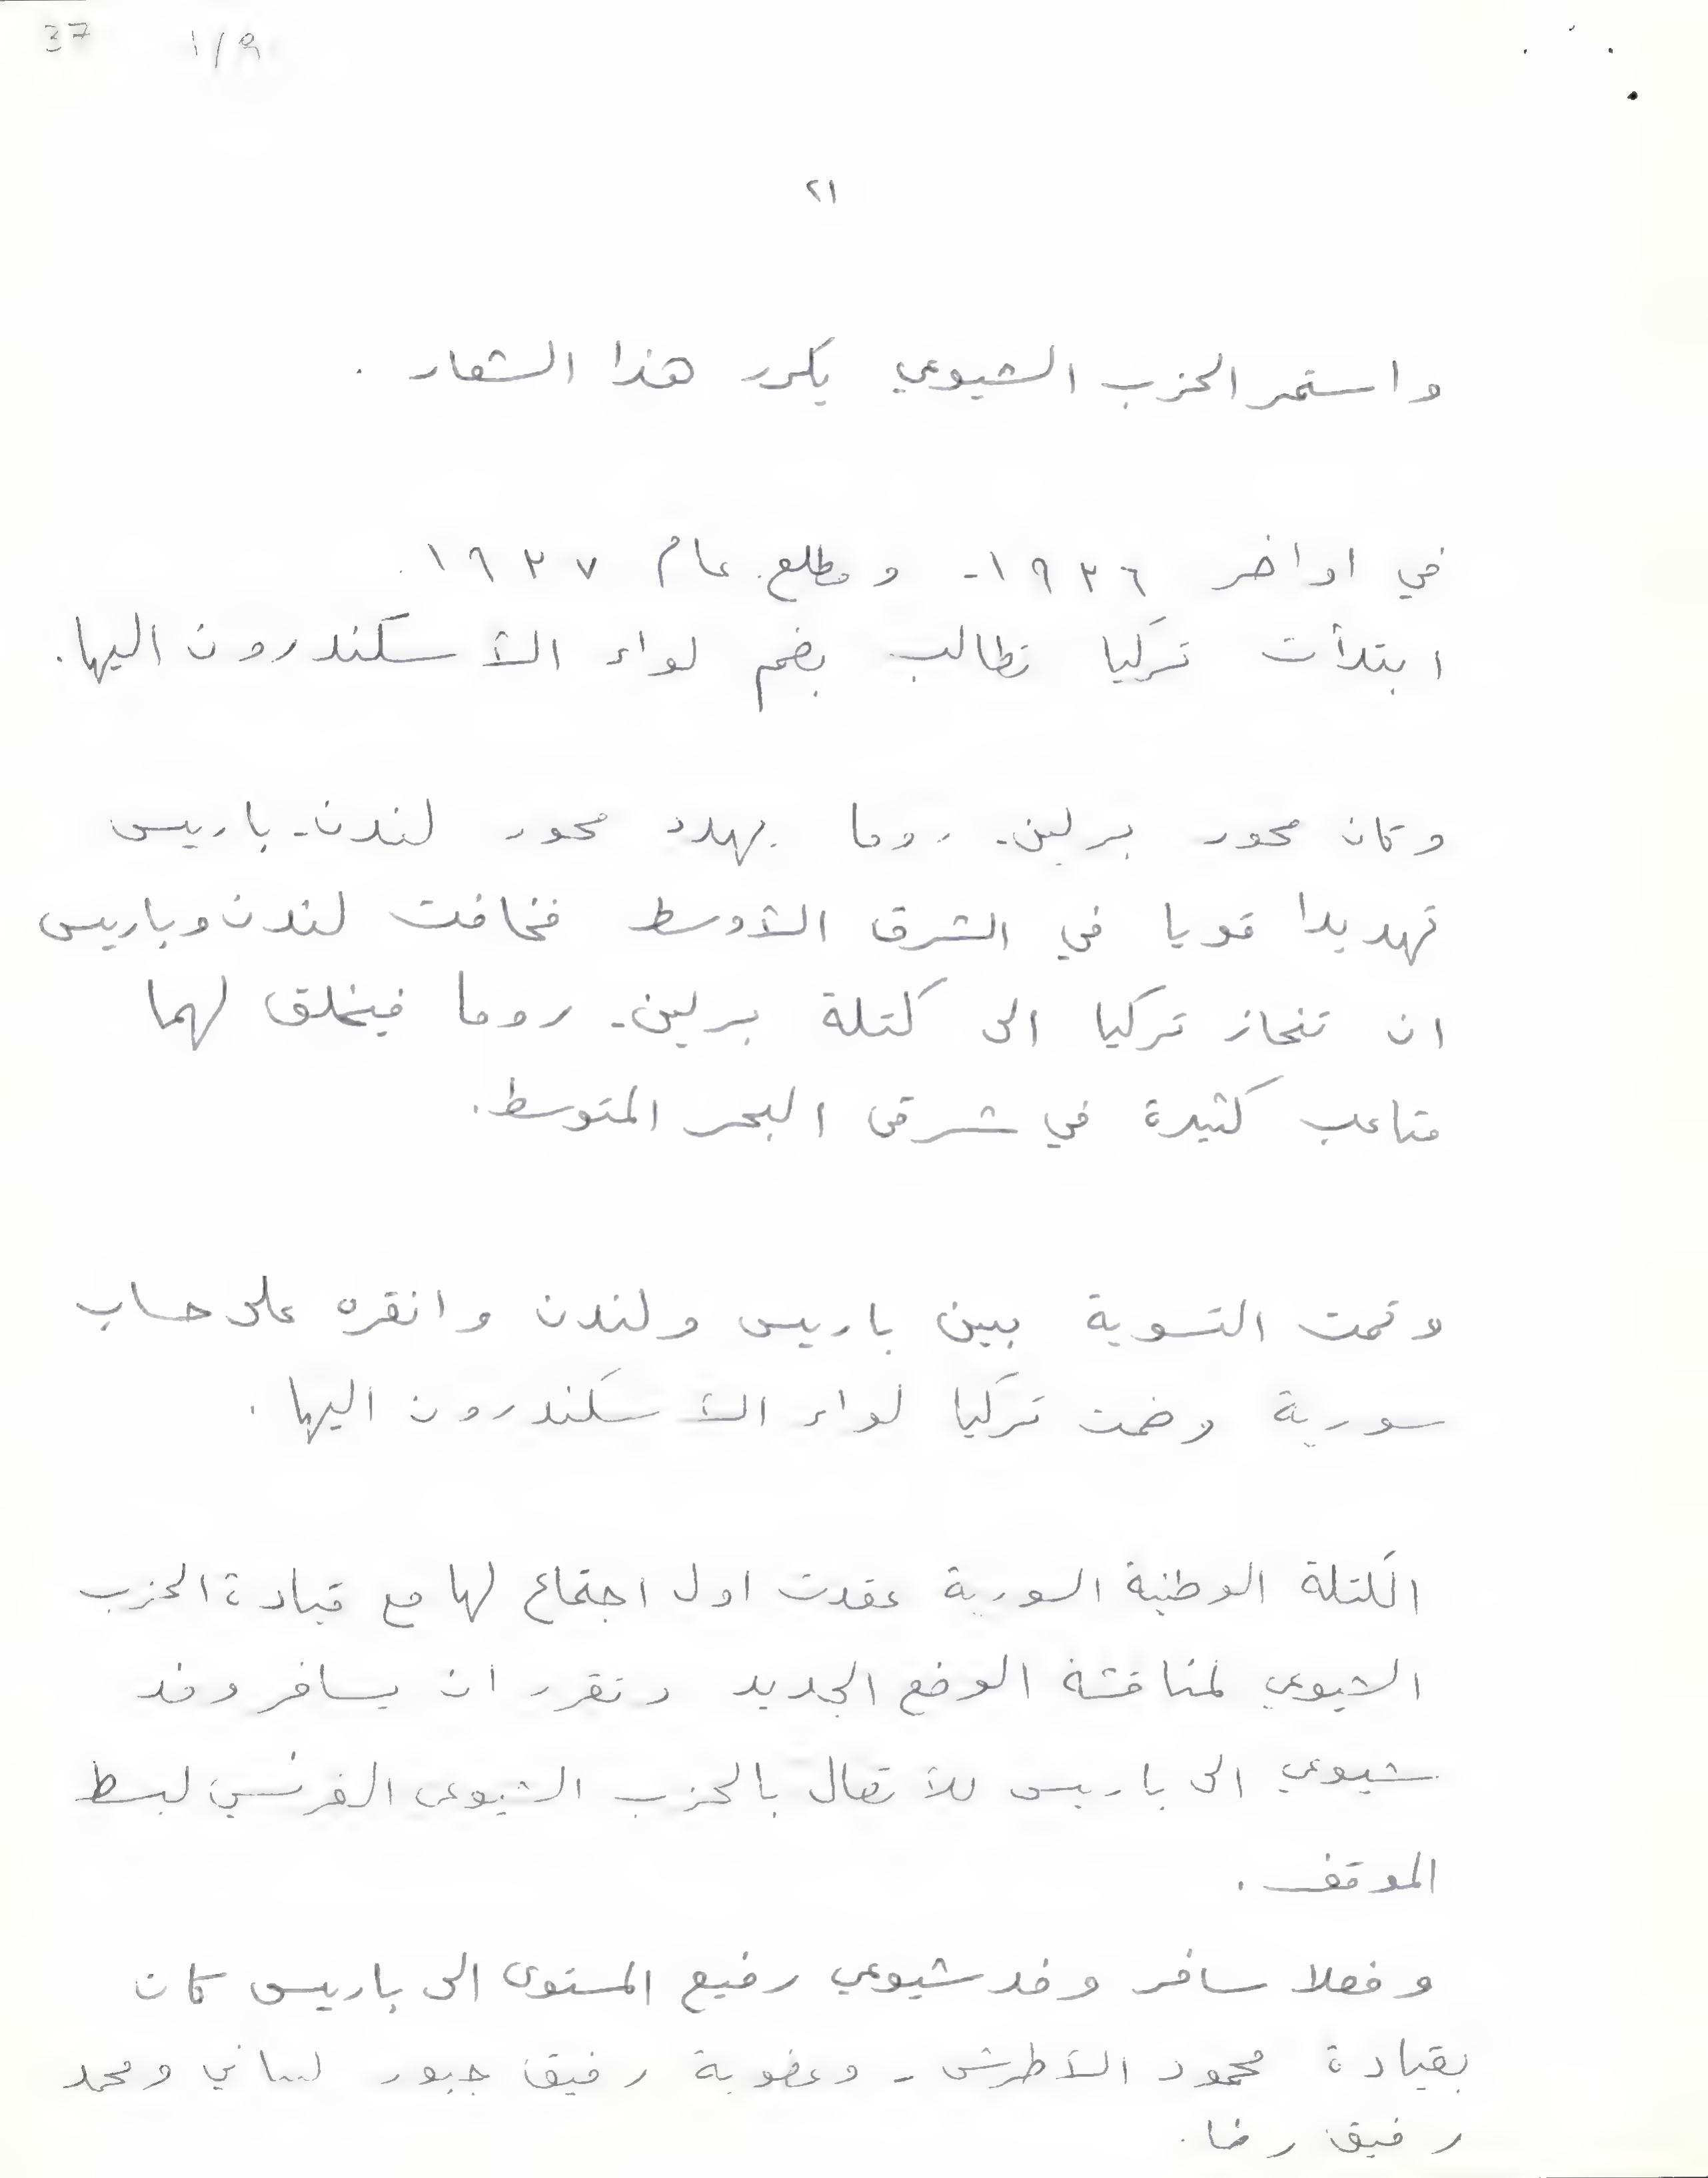 37 1/9
٢١
واستمر الحزب الشيوعي يكرر هذا الشعار .
في اواخر ١٩٣٦- ومطلع عام ١٩٣٧.
ابتدأت تركيا تطالب بضم لواء الأسكندرون اليها.
وكان محور برلين - روما يهدد محور لندن - باريس
تهديدا قويا في الشرق الأوسط فخافت لندن وباريس
ان تنحاز تركيا الى كتلة برلين - روما فيخلق لهما
متاعب كثيرة في شرقى البحر المتوسط.
وتمت التسوية بين باريس ولندن وانقره على حساب
سورية وضمت تركيا لواء الأسكندرون اليها .
الكتلة الوطنية السورية عقدت اول اجتماع لها مع قيادة الحزب
الشيوعي لمناقشة الوضع الجديد وتقرر ان يسافر وفد
شيوعي الى باريس للأتصال بالحزب الشيوعى الفرنسي لبسط
الموقف .
وفعلا سافر وفد شيوعي رفيع المستوى الى باريس كان
بقيادة محمود الأطرش - وعضوية رفيق جبور لبناني ومحمد
رفيق رضا .